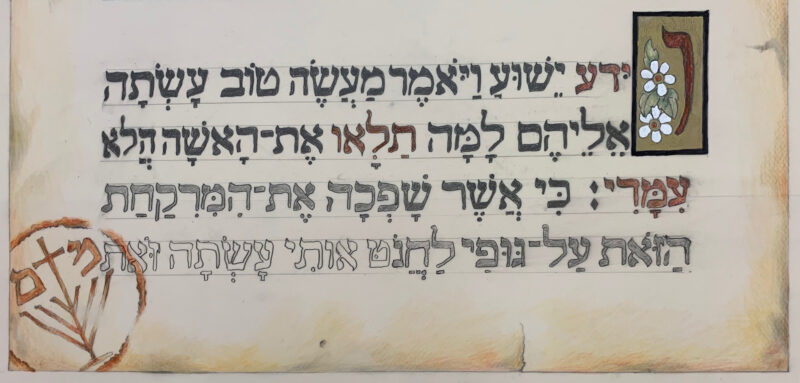 וַיֵּדע יֵשׁוּעַ וַיֹּאמֶר מַעֲשֶׂה טוֹב עָשְׂתָה
אֲלֵיהֶם לָמָּה תַלְאוּ אֶת־הָאִשָּׁה הֲלֹא
עִמָּדִי׃ כִּי אֲשֶׁר שָׁפְכָה אֶת־הַמִּרְקַחַת
הַזֹּאת עַל־גּוּפִי לַחֲנֹט אוֹתִי עָשְׂתָה זֹאת